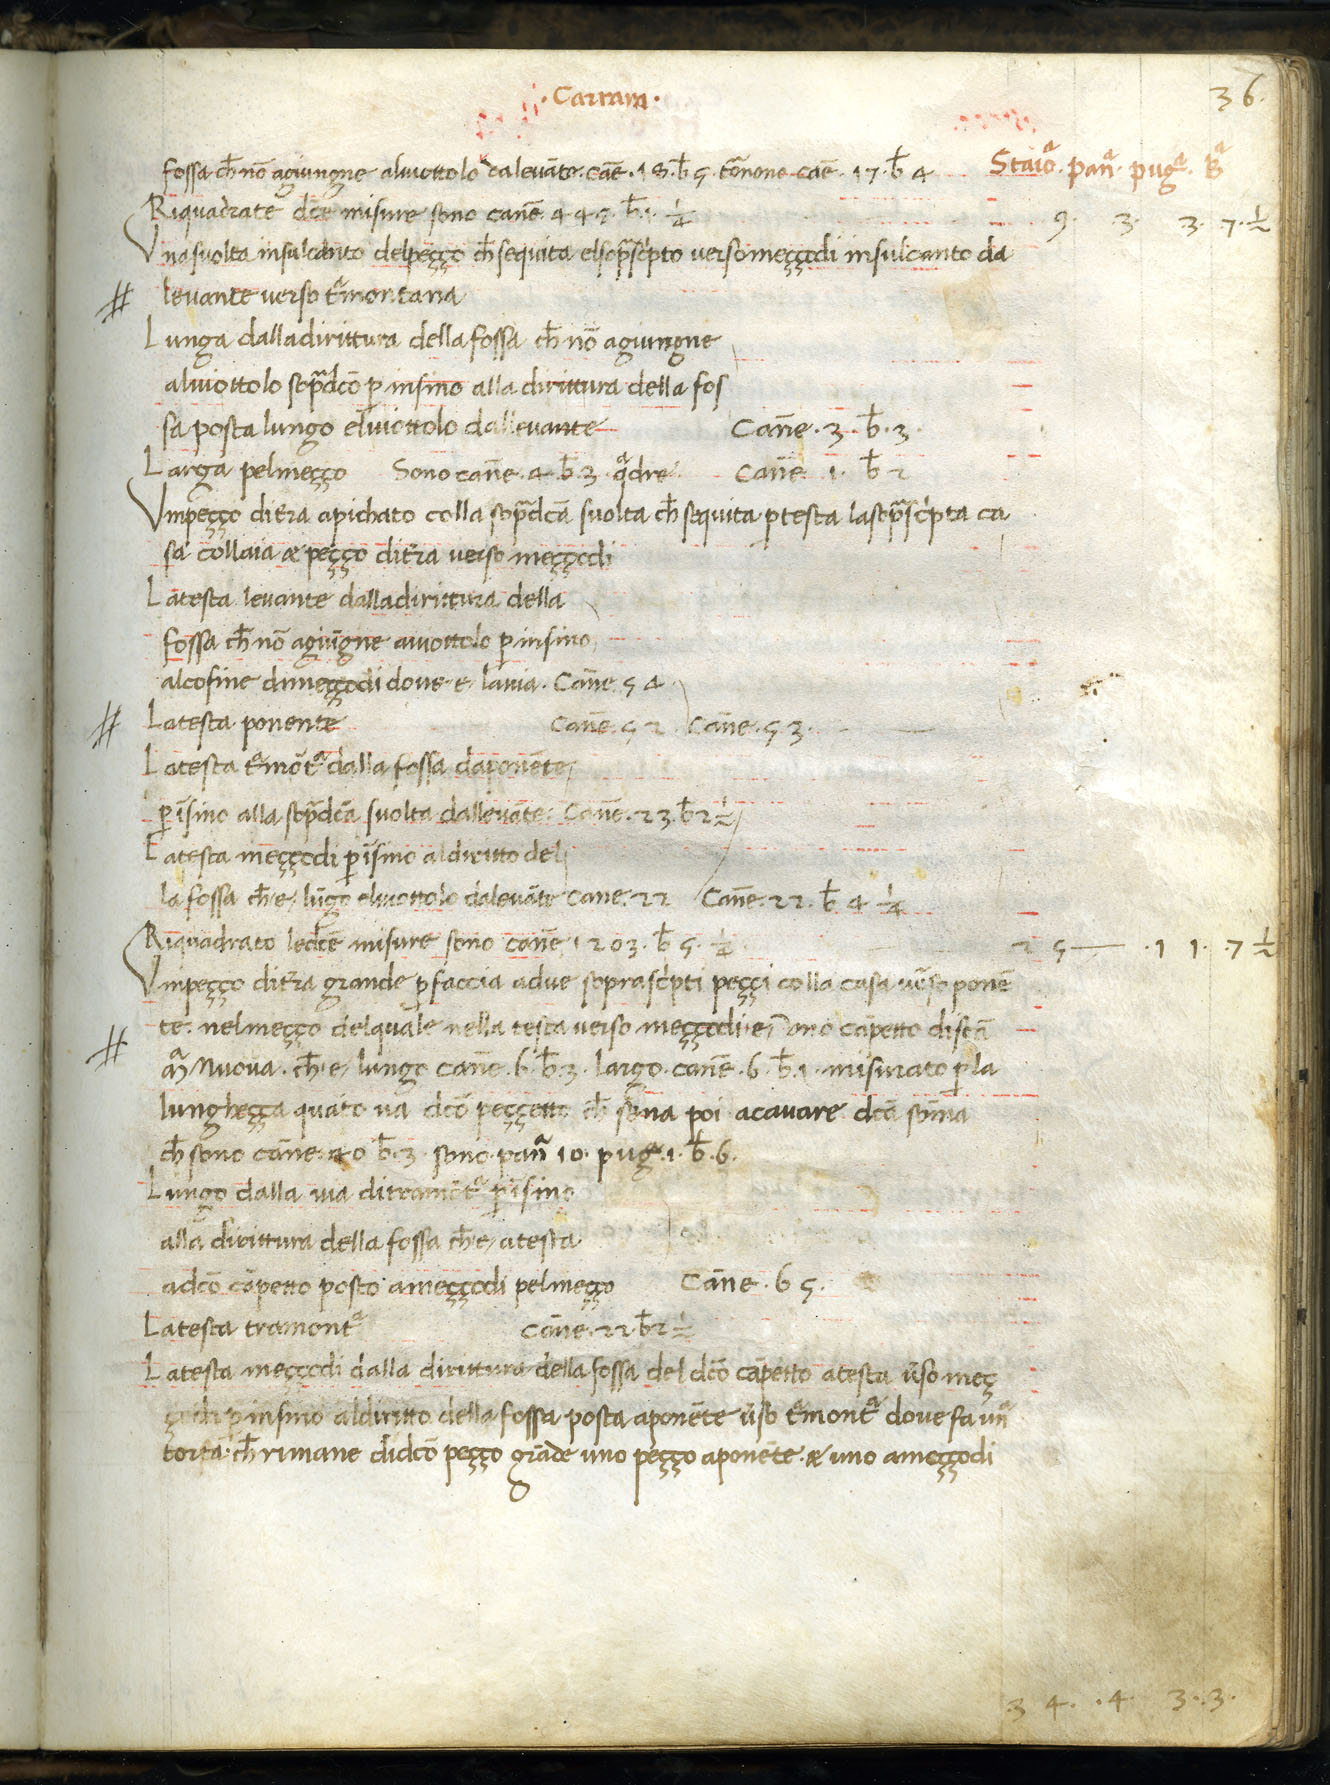 · Carram ·
36.
fossa ch̄ nō agiungne alviottolo dalevāte. cāe .18. b̄ 5. cāe .17. b̄ 4
Staiª. panª. pugª. Bª
Riquadrate dc̄e misure sono canē 445. b̄.1. ¼ 9. 3. 3. 7. ½
Vna svolta insulcanto delpeçço ch̄ sequita elsopᵃscpto verso meççodi insulcanto da
levante verso tᵃmontana
Lunga dalladirittura della fossa ch̄ nō agiungne
alviottolo sopᵃdcō p̱ insino alla dirittura della fos
sa posta lungo elviottolo dallevante Canē. 3. b̄. 3.
Larga pelmeçço Sono canē. 4. b̄. 3. qᵃdre Canē 1. b̄ 2
Vmpeçço ditr̄a apichato colla sopᵃdcā svolta ch̄ sequita p̱ testa lasopᵃscpta ca
sa collaia & peçço ditr̄a verso meççodi
Latesta levante dalladirittura della
fossa ch̄ nō agiūgne aviottolo p̱ insino
alcofine dimeççodi dove e lavia. Canē 54.
Latesta ponente Canē. 52 Canē. 53.
Latesta tᵃmōtª dalla fossa daponēte
p̱ īsino alla sopᵃdcā svolta dallevāte. Canē. 23. b̄ 2 ½
Latesta meççodi p̱ īsino aldiritto del
la fossa ch̄ e lūgo elviottolo dalevāte Canē. 22 Canē. 22. b̄ 4 ¼
Riquadrato ledcē misure sono canē 1203. b̄ 5. ¼ 25 — . 11. .7 ½
Vmpeçço ditr̄a grande p̱ faccia adve soprascpti peççi colla casa ūso ponē
te. nelmeçço delquale nella testa verso meççodi e cāpetto discā
Mª Nuova. ch̄ e lungo canē. 6. b̄. 3. largo. canē. 6. b̄. 1. misurato p̱ la
lungheçça quāto va dcō peççetto ch̄ poi acavare dcā somā
ch̄ sono canē. 40 b̄. 3. sono. panª 10. pugª. 1. b̄. 6.
Lungo dalla via ditramōtª p̱ īsino
alla dirittura della fossa ch̄ e atesta
adcō cāpetto posto ameççodi pelmeçço Canē. 65.
Latesta tramontª Canē. 22. b̄ 2 ½
Latesta meççodi dalla dirittura della fossa del dcō cāpetto atesta ūso meç
çodi p̱ insino aldiritto della fossa posta aponēte ūso tᵃmontª dove fa unª
torta. ch̄ rimane didcō peçço grāde uno peçço aponēte. & uno ameççodi
.3 4. .4. 3..3.